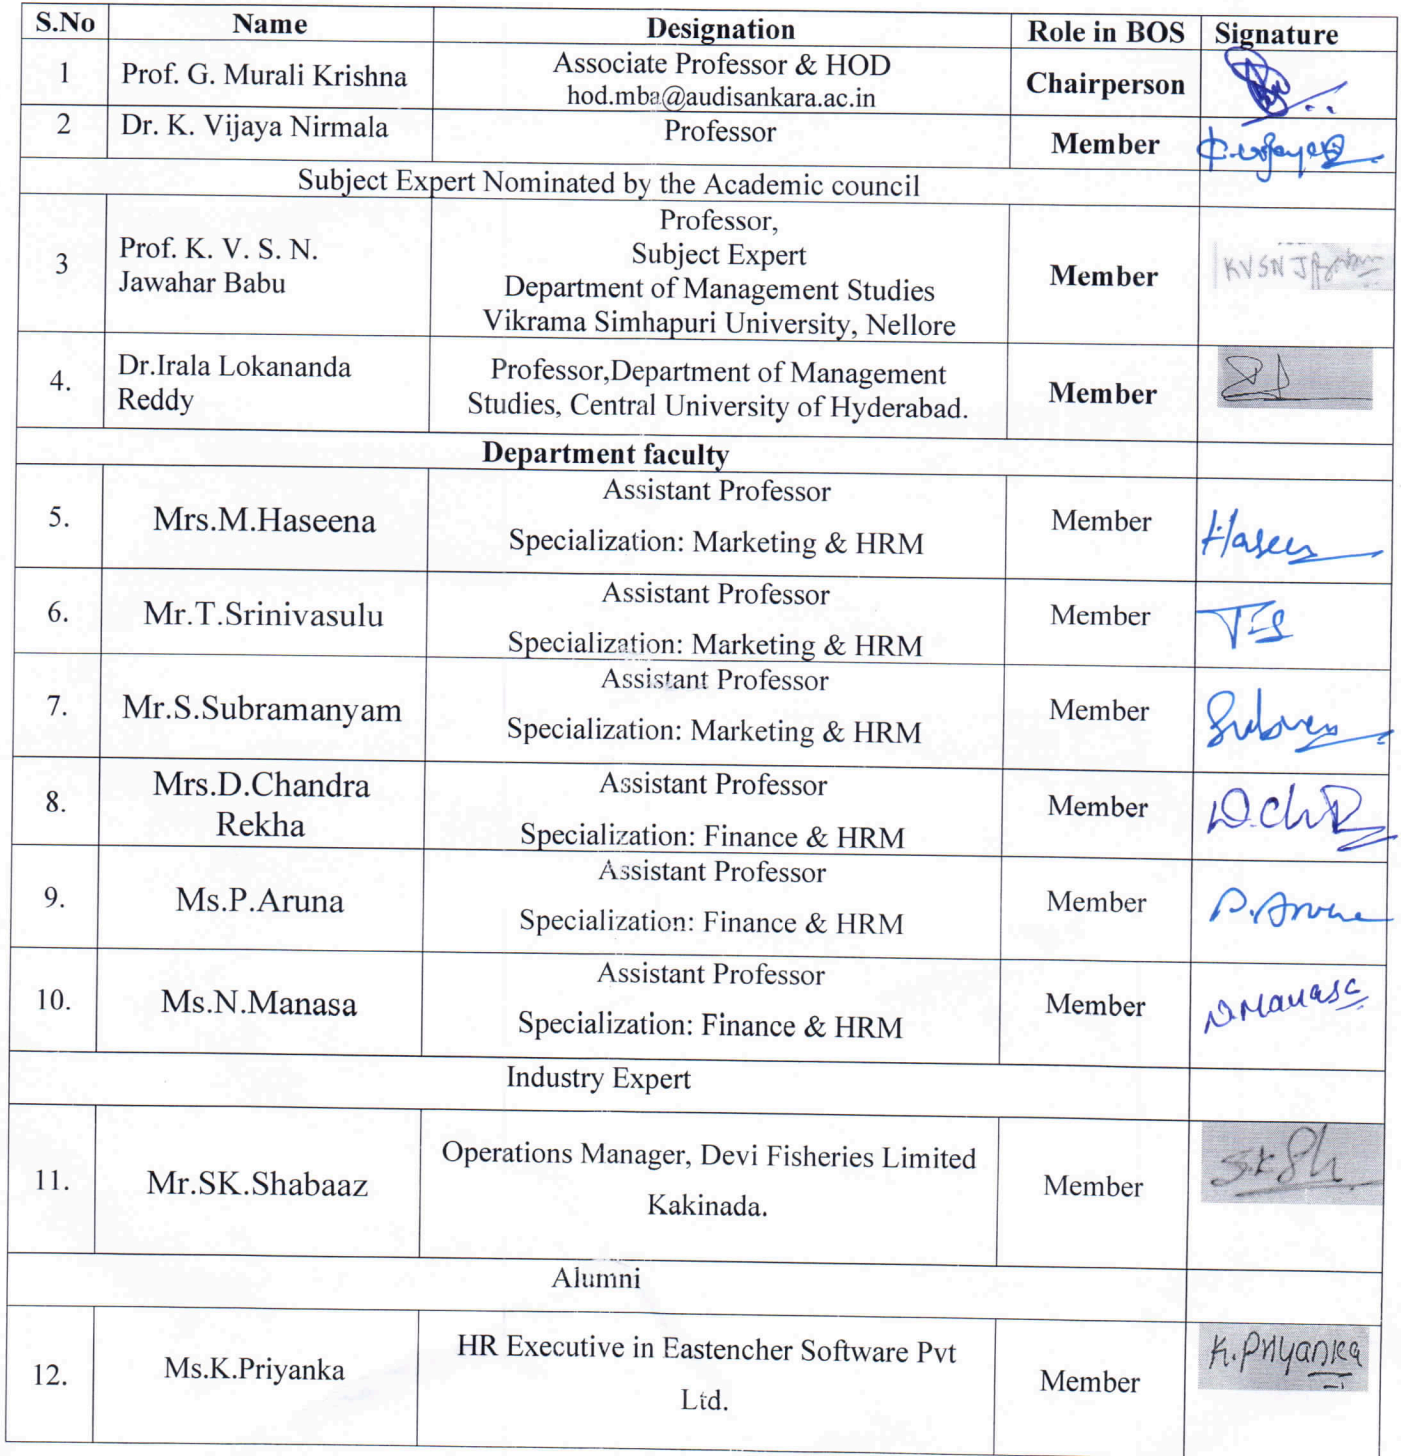 S.No Name Designation Role in BOS Signature
1 Prof. G. Murali Krishna Associate Professor & HOD Chairperson
hod.mba@audisankara.ac.in
2 Dr. K. Vijaya Nirmala Professor Member
Subject Expert Nominated by the Academic council
3 Prof. K. V. S. N.
Jawahar Babu
Professor,
Subject Expert
Department of Management Studies
Vikrama Simhapuri University, Nellore
Member
KVSN J
4. Dr.Irala Lokananda
Reddy
Professor,Department of Management
Studies, Central University of Hyderabad.
Member
Department faculty
5. Mrs.M.Haseena
Assistant Professor
Specialization: Marketing & HRM
Member
6. Mr.T.Srinivasulu
Assistant Professor
Specialization: Marketing & HRM
Member
7. Mr.S.Subramanyam
Assistant Professor
Specialization: Marketing & HRM
Member
8. Mrs.D.Chandra
Rekha
Assistant Professor
Specialization: Finance & HRM
Member
9. Ms.P.Aruna
Assistant Professor
Specialization: Finance & HRM
Member
P.Aruna
10. Ms.N.Manasa
Assistant Professor
Specialization: Finance & HRM
Member
N.Manasa
Industry Expert
11. Mr.SK.Shabaaz
Operations Manager, Devi Fisheries Limited
Kakinada.
Member
Alumni
12. Ms.K.Priyanka
HR Executive in Eastencher Software Pvt
Ltd.
Member
K.Priyanka